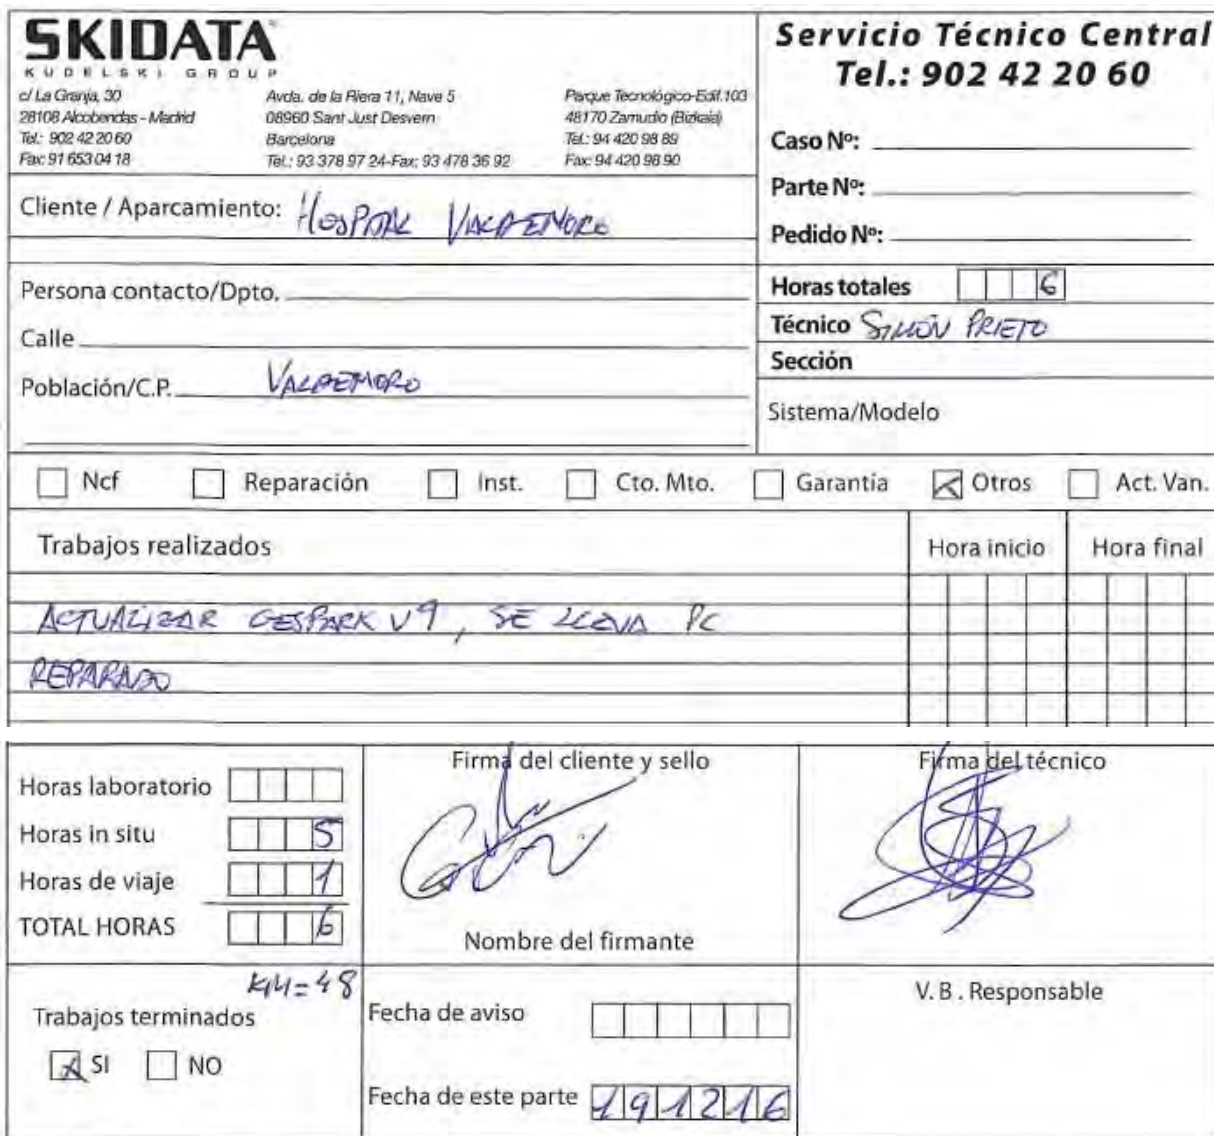 SKIDATA
KUDELSKI GROUP
c/ La Granja, 30
28108 Alcobendas - Madrid
Tel.: 902 42 20 60
Fax: 91 653 04 18
Avda. de la Riera 11, Nave 5
08960 Sant Just Desvern
Barcelona
Tel.: 93 378 97 24-Fax: 93 478 36 92
Parque Tecnológico-Edif.103
48170 Zamudio (Bizkaia)
Tel.: 94 420 98 89
Fax: 94 420 98 90
Servicio Técnico Central
Tel.: 902 42 20 60
Caso Nº:
Parte Nº:
Pedido Nº:
Cliente / Aparcamiento: HOSPITAL VALDEMORO
Persona contacto/Dpto.
Calle
Población/C.P. VALDEMORO
Horas totales 6
Técnico SIMÓN PRIETO
Sección
Sistema/Modelo
Ncf Reparación Inst. Cto. Mto. Garantía Otros Act. Van.
Trabajos realizados Hora inicio Hora final
ACTUALIZAR GESPARK V9, SE LLEVA PC
REPARADO
Horas laboratorio
Horas in situ 5
Horas de viaje 1
TOTAL HORAS 6
Firma del cliente y sello
Nombre del firmante
Firma del técnico
KM=48
Trabajos terminados
SI NO
Fecha de aviso
Fecha de este parte 191216
V. B. Responsable